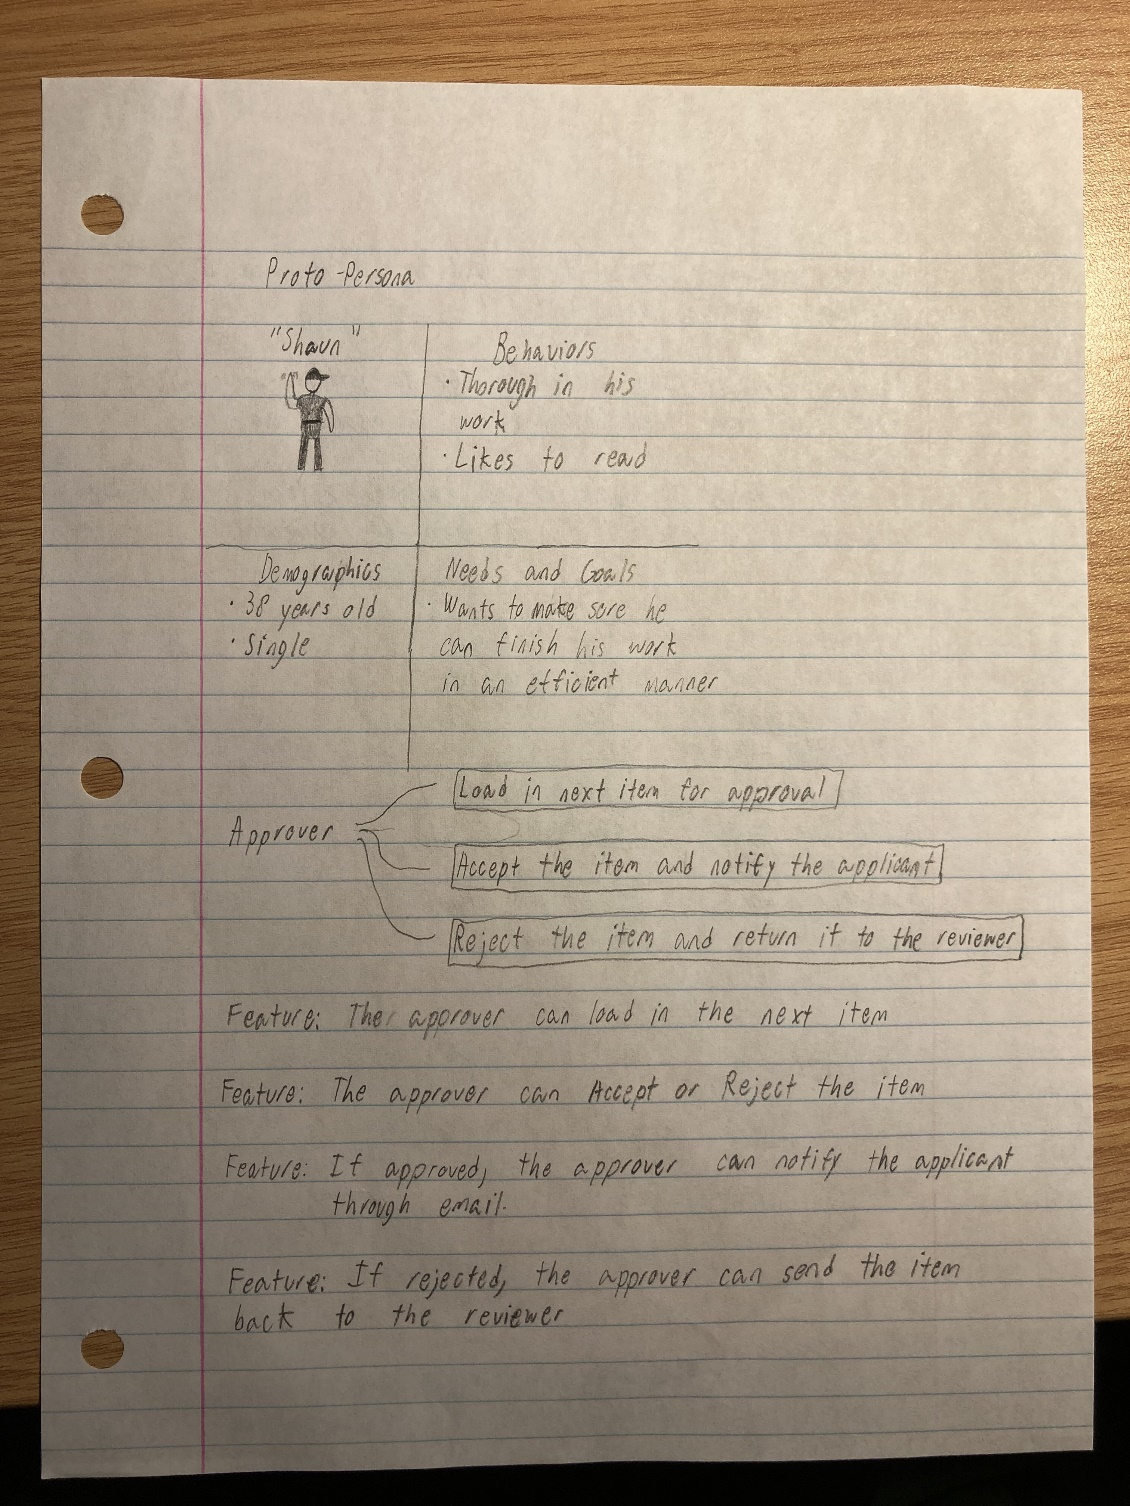 Proto-Persona
"Shaun"
Behaviors
· Thorough in his
work
· Likes to read
Demographics
· 38 years old
· Single
Needs and Goals
· Wants to make sure he
can finish his work
in an efficient manner
Approver
Load in next item for approval
Accept the item and notify the applicant
Reject the item and return it to the reviewer
Feature: The approver can load in the next item
Feature: The approver can Accept or Reject the item
Feature: If approved, the approver can notify the applicant
through email.
Feature: If rejected, the approver can send the item
back to the reviewer